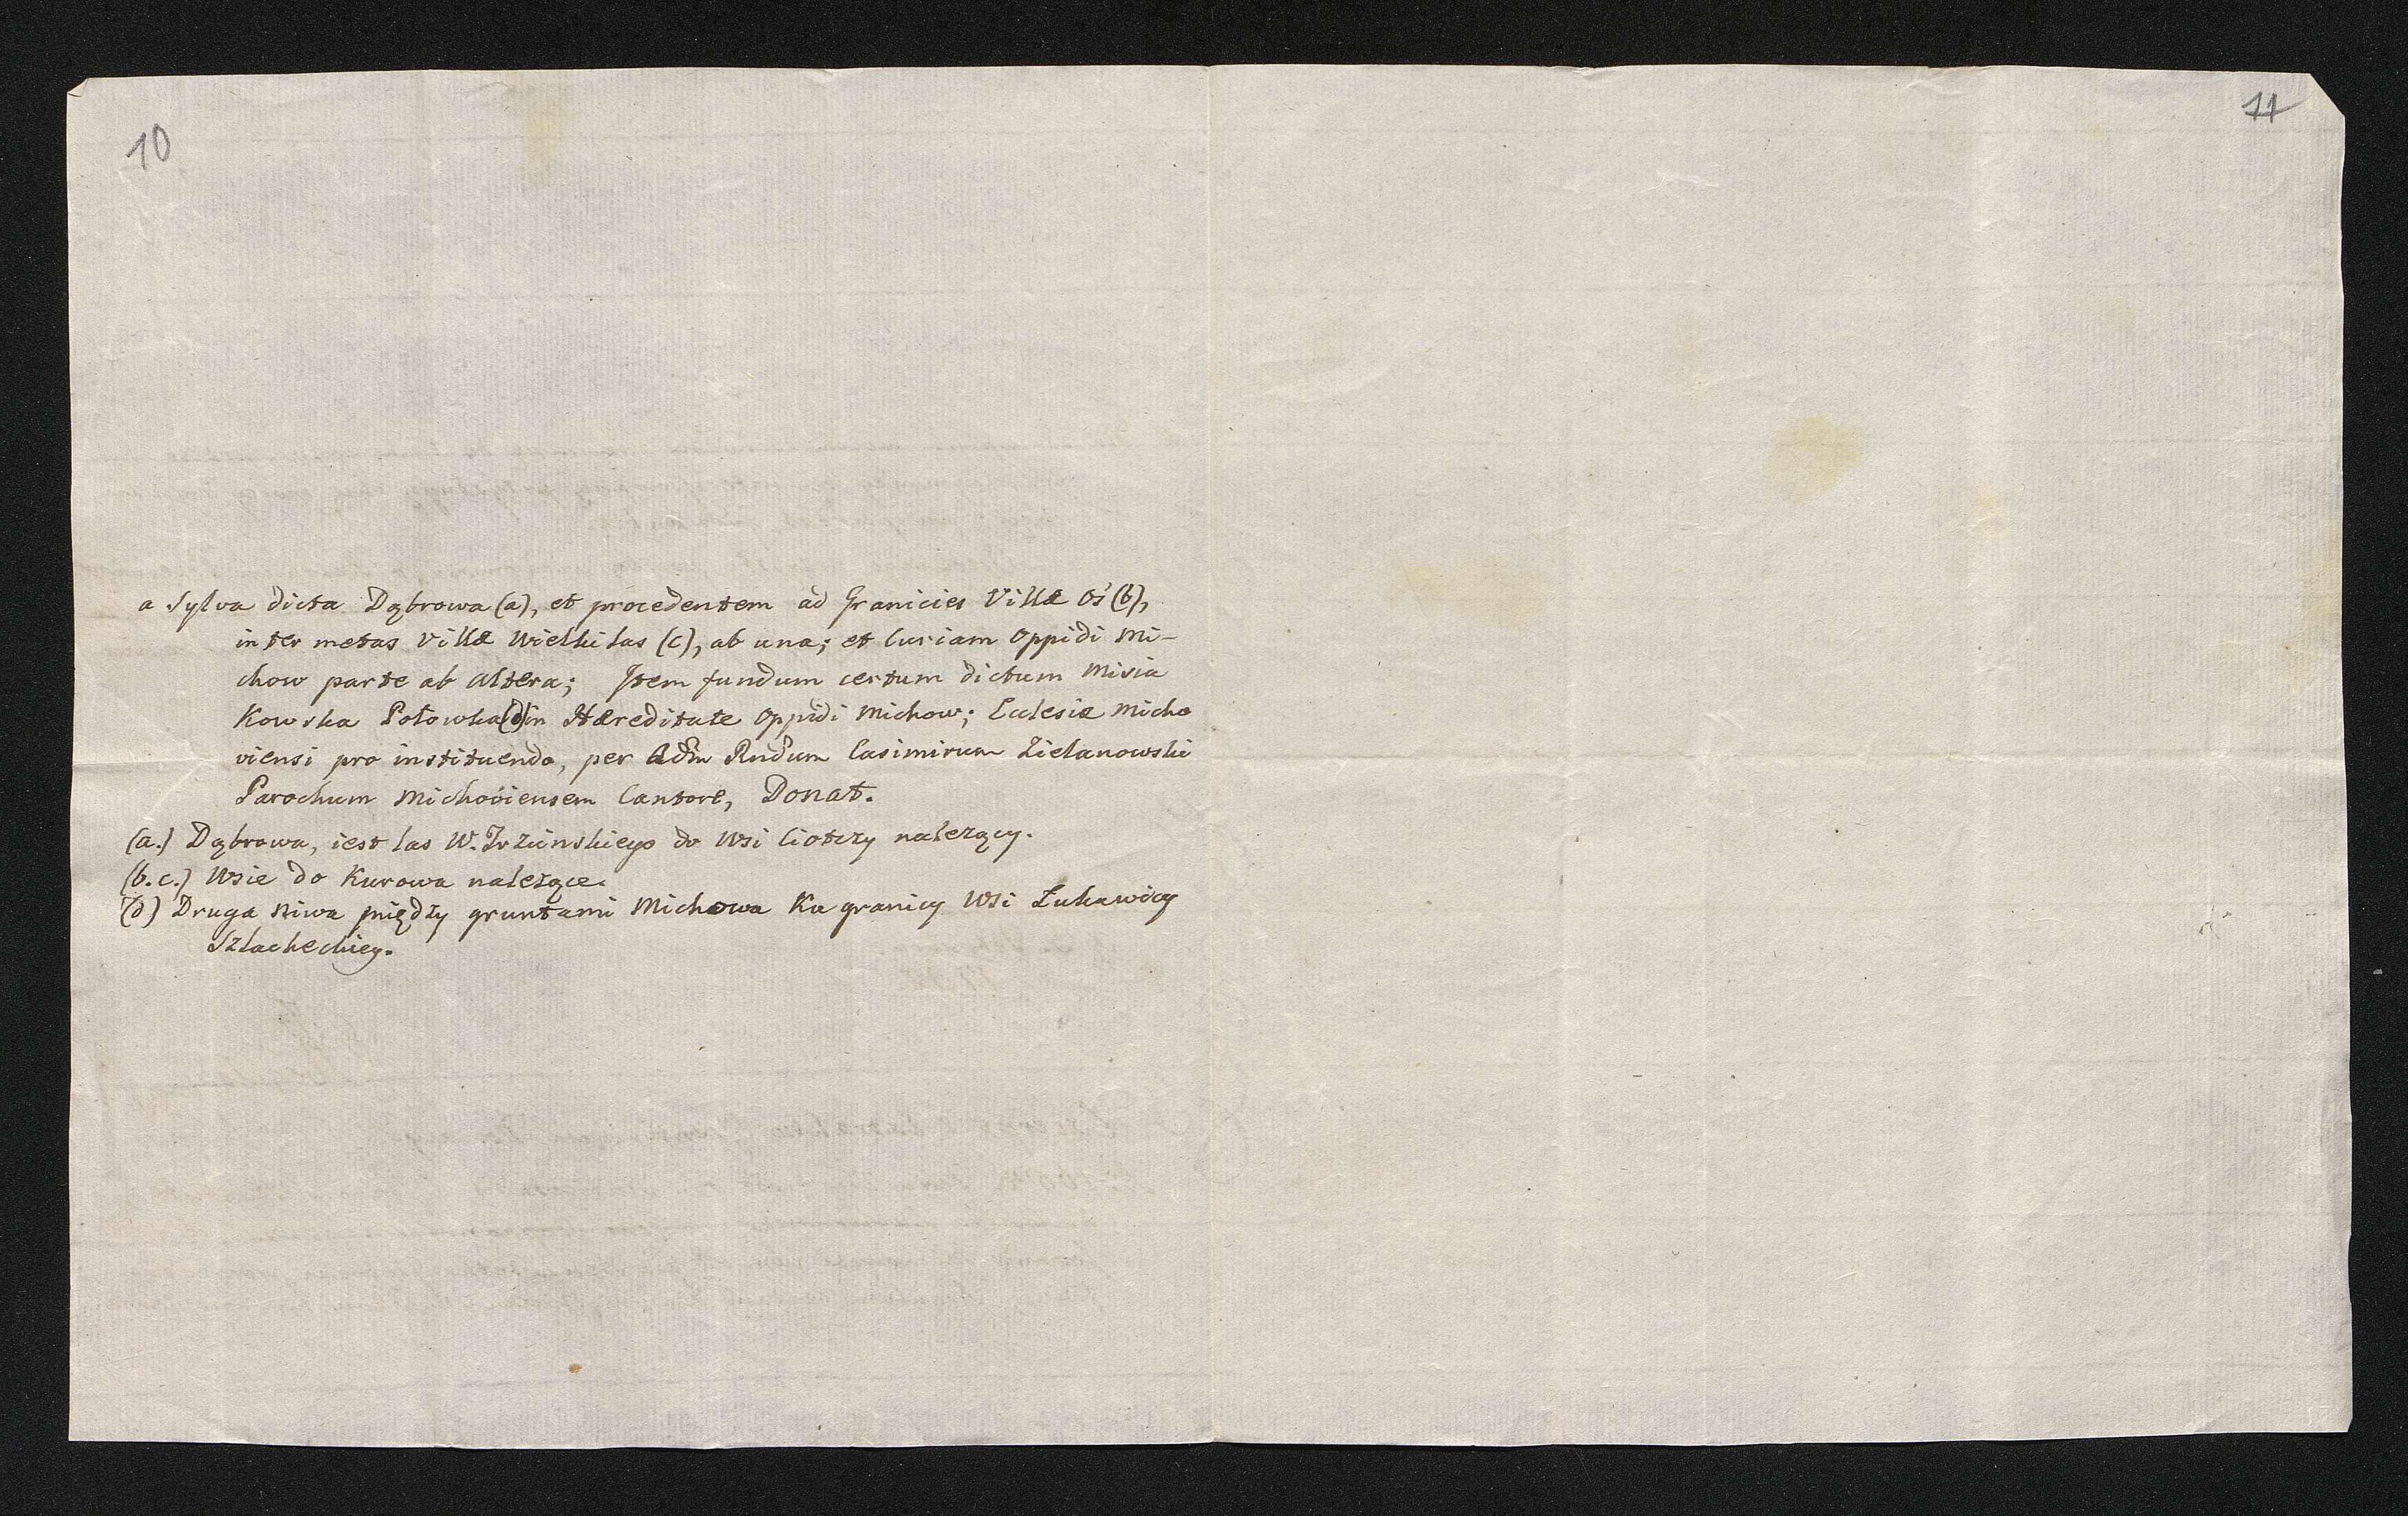 10
11
a Sylva dicta Dąbrowa (a), et procedentem ad Granicies Villæ Oś (b),
inter metas Villæ Wielki las (c), ab una; et Curiam Oppidi Mi-
chow parte ab altera; Item fundum certum dictum Misia
Kowska Połowka (d) in Hæreditate Oppidi Michow; Eclesiæ Micho
viensi pro instituendo, per Adm Rndum Casimirum Zielanowski
Parochum Michoviensem Cantore, Donat.
(a.) Dąbrowa, iest las W. do Wsi Ciotczy należący.
(b.c.) Wsie do Kurowa należące.
(d) Druga Niwa między gruntami Michowa Ku granicy Wsi Łukawicy
Szlacheckiey.